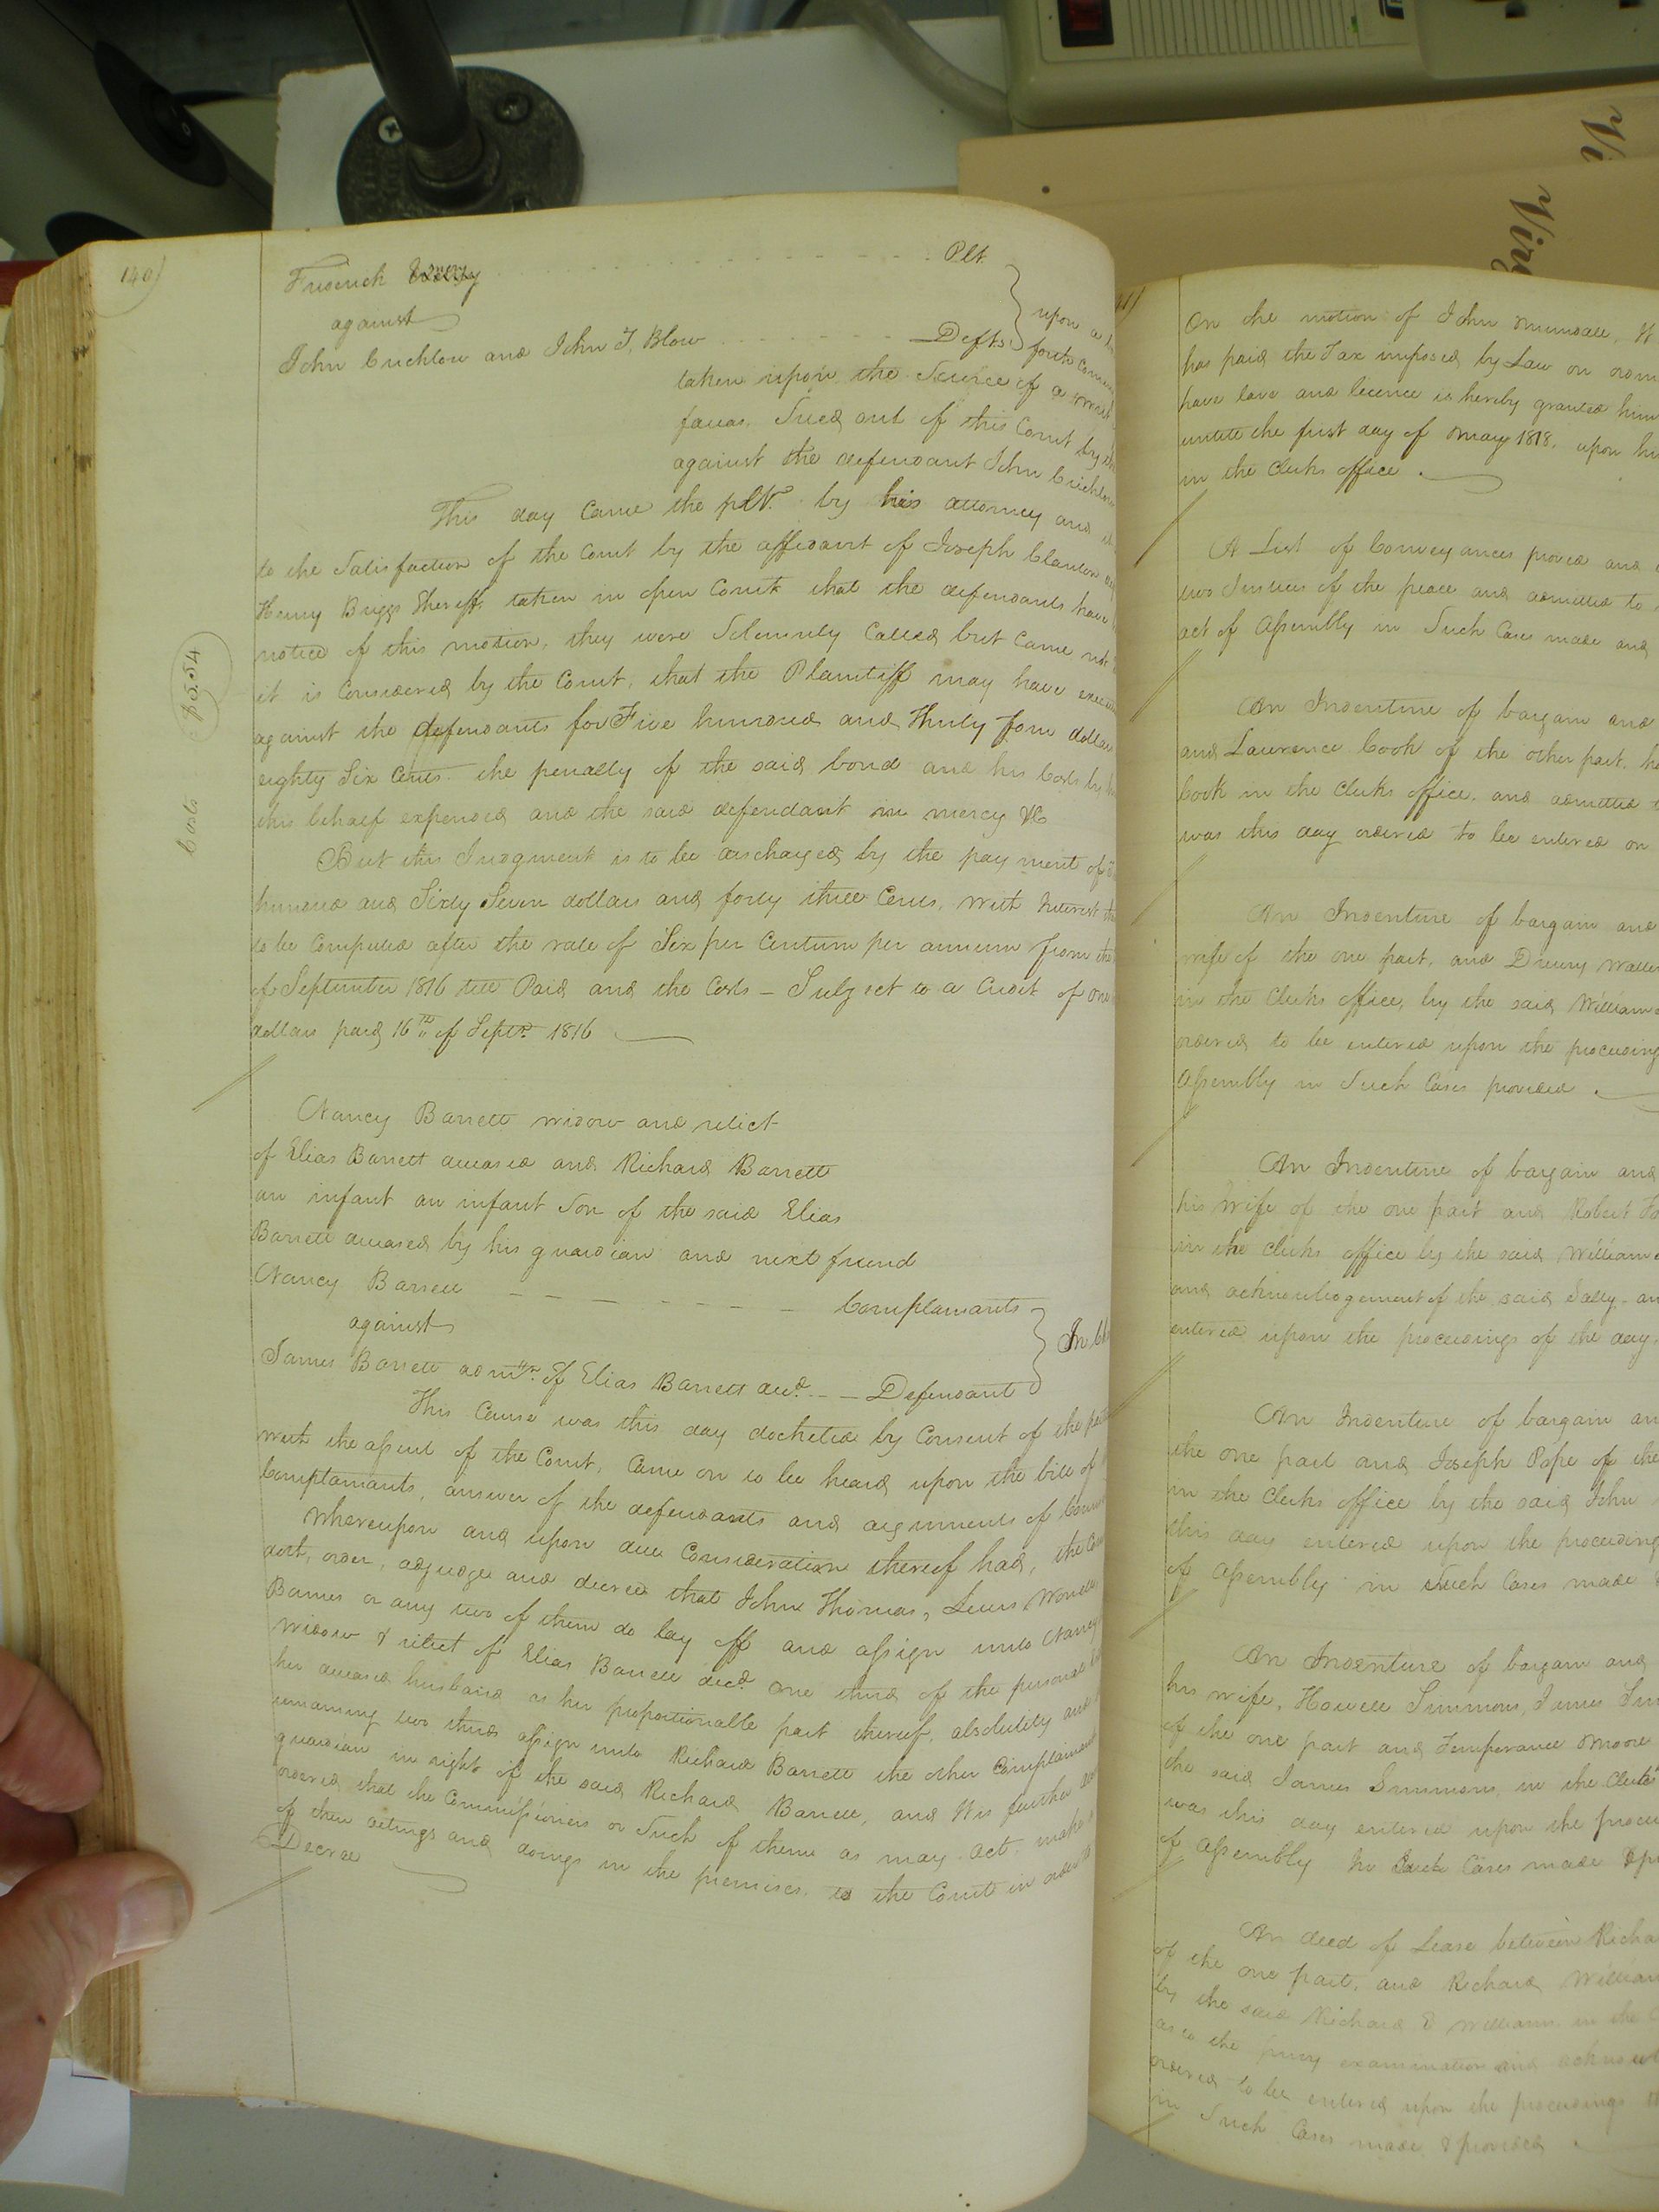 140)
Frederick
Plt.
against
upon a
John Crichlow and John T. Blow
Defts
forth
taken upon the Service of a
facias. Sued out of this Court by
against the defendant John Crichlow
This day Came the plt. by his attorney and
to the Satisfaction of the Court by the affidavit of Joseph Claudon
Henry Briggs Sheriff, taken in open Court that the defendants have
notice of this motion, they were Solemnly Called but Came not
it is Considered by the Court, that the Plaintiff may have
against the defendants for Five hundred and Thirty four dollars
eighty Six Cents the penalty of the said bond and his Costs by
this behalf expended and the said defendant in mercy &c
Costs $5.54
But this Judgment is to be discharged by the payment of
hundred and Sixty Seven dollars and forty three Cents, with Interest
to be Computed after the rate of Six per Centum per annum from the
of September 1816 till Paid and the Costs – Subject to a Credit of one
dollars paid 16th of Septr. 1816
Nancy Barrett widow and relict
of Elias Barrett deceased and Richard Barrett
an infant an infant Son of the said Elias
Barrett deceased by his guardian and next friend
Nancy Barrett
Complainants
against
In
James Barrett admr. of Elias Barrett decd. – – Defendant
This Cause was this day docketed by Consent of the
with the assent of the Court, Came on to be heard upon the bill of
Complainants, answer of the defendants and arguments of
Whereupon and upon due Consideration thereof had, the
doth, order, adjudge and decree that John Thomas, Lewis
Barnes or any two of them do lay off and assign unto Nancy
widow & relict of Elias Barrett decd. one third of the personal
her deceased husband as her proportionable part thereof, absolutely and
remaining two thirds assign unto Richard Barrett the other Complainant
guardian in right of the said Richard Barrett, and tis further
ordered that the Commissioners or Such of them as may act, make
of their actings and doings in the premises, to the Court in
Decree
On the motion of John
has paid the Tax imposed by Law on
have lave and licence is hereby granted him
untill the first day of may 1818, upon his
in the Clerks office.
A List of Conveyances proved and
two Justices of the peace and admitted to
act of Assembly in Such Case made and
An Indenture of bargain and
and Lawrence Cook of the other part,
Cook in the Clerks office, and admitted
was this day ordered to be entered on
An Indenture of bargain and
wife of the one part, and Drury
in the Clerks office, by the said William
ordered to be entered upon the proceedings
Assembly in Such Cases provided.
An Indenture of bargain and
his wife of the one part and Robert
in the Clerks office by the said William
and acknowledgement of the said Sally
entered upon the proceedings of the day
An Indenture of bargain and
the one part and Joseph Pope of the
in the Clerks office by the said John
this day entered upon the proceedings
of Assembly in Such Cases made
An Indenture of bargain and
his wife, Howell Simmons, James
of the one part and Temperance Moore
the said James Simmons, in the Clerks
was this day entered upon the
of Assembly in Such Cases made &
An deed of Lease between
of the one part, and Richard William
by the said Richard & William in the
as to the privy examination and
ordered to be entered upon the proceedings
in Such Cases made & provided.